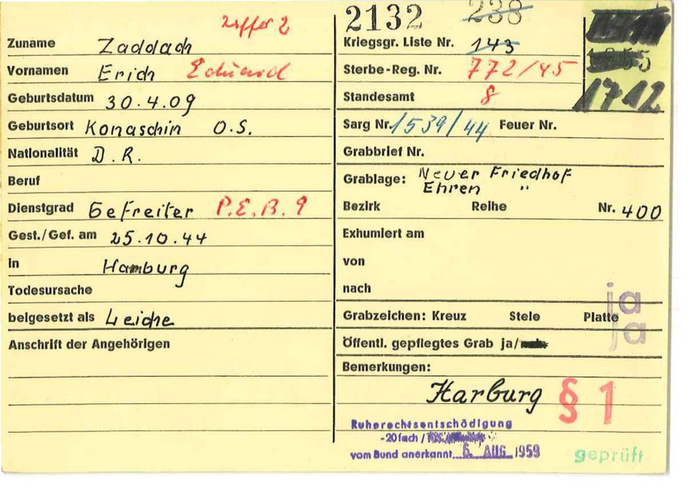 Ziffer 2
Zuname Zaddach
Vornamen Erich Eduard
Geburtsdatum 30.4.09
Geburtsort Konaschin O.S.
Nationalität D.R.
Beruf
Dienstgrad Gefreiter P.E.B. 9
Gest./Gef. am 25.10.44
in Hamburg
Todesursache
beigesetzt als Leiche
Anschrift der Angehörigen
2132 238
Kriegsgr. Liste Nr. 143
Sterbe-Reg. Nr. 772/45
Standesamt 8
1712
Sarg Nr. 1539/44 Feuer Nr.
Grabbrief Nr.
Grablage: Neuer Friedhof
Ehren "
Bezirk Reihe Nr. 400
Exhumiert am
von
nach
ja
Grabzeichen: Kreuz Stele Platte
ja
Öffentl. gepflegtes Grab ja/
Bemerkungen:
Harburg § 1
Ruherechtsentschädigung
-20fach/
vom Bund anerkannt 6. AUG. 1959
geprüft